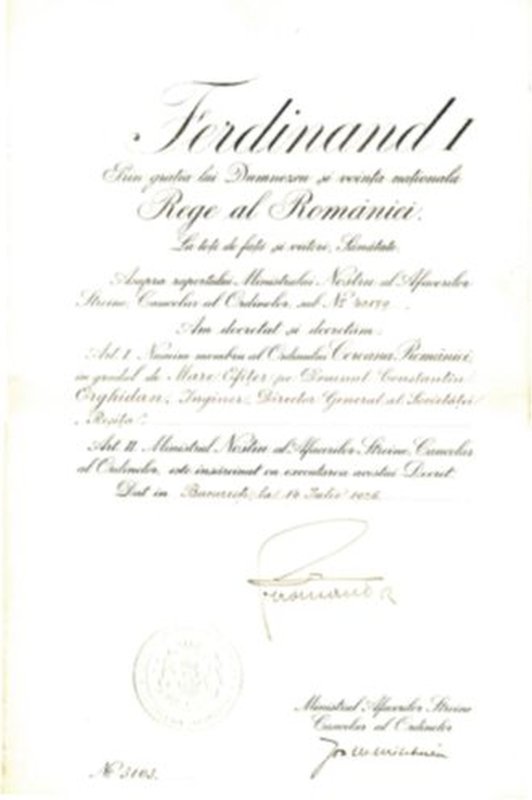 Ferdinand I
Prin gratia lui Dumnezeu și voința națională
Rege al României.
La toți de față și viitori, Sănătate.
Asupra raportului Ministrului Nostru al Afacerilor
Streine, Cancelar al Ordinelor, sub Nº
Am decretat și decretăm:
Art. I. Numim membru al Ordinului Coroana României
în gradul de Mare Ofițer pe Domnul Constantin
Orghidan, Inginer, Director General al Societăței
"Reșița".
Art. II. Ministrul Nostru al Afacerilor Streine, Cancelar
al Ordinelor, este însărcinat cu executarea acestui Decret.
Dat în București la 14 Iulie 1926
Ferdinand
Ministrul Afacerilor Streine
Cancelar al Ordinelor
Nº 3103.